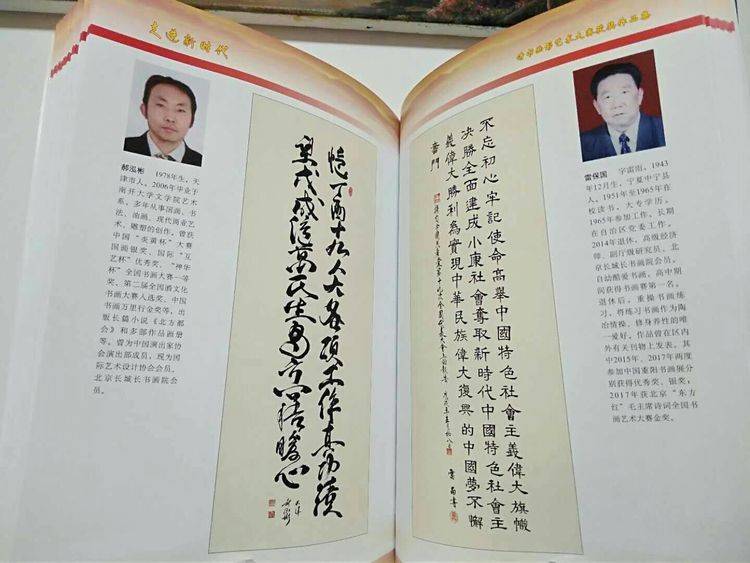 走进新时代
郝泓彬 1978年生，天
津市人，2006年毕业于
南开大学文学院艺术
系，多年从事国画、书
法、油画、现代商业艺
术、雕塑的创作，曾获
中国“炎黄杯”大赛
国画银奖、国际“互
艺杯”优秀奖、“神华
杯”全国书画大赛一等
奖、第二届全国酒文化
书画大赛入选奖，中国
书画万里行金奖等，出
版长篇小说《北方都
会》和多部作品画册
等。曾为中国演出家协
会演出部成员，现为国
际艺术设计协会会员、
北京长城长书画院会
员。
丁酉十九人大各项工作真功绩
戊戌成 萬民生 暖心
诗书画影艺术大赛获奖作品集
不忘初心牢記使命高舉中國特色社會主義偉大旗幟
決勝全面建成小康社會奪取新時代中國特色社會主
義偉大勝利為實現中華民族偉大復興的中國夢不懈
奮鬥
雷保国 字雷雨，1943
年12月生，宁夏中宁县
人，1951年至1965年在
校读书，大专学历，
1965年参加工作，长期
在自治区党委工作，
2014年退休，高级经济
师、副厅级研究员、北
京长城长书画院会员。
自幼酷爱书画，高中期
间获得书画赛第一名。
退休后，重操书画练
习，将练习书画作为陶
冶情操、修身养性的唯
一爱好。作品曾在区内
外有关刊物上发表。其
中2015年、2017年两度
参加中国重阳书画展分
别获得优秀奖、银奖；
2017年获北京“东方
红”毛主席诗词全国书
画艺术大赛金奖。